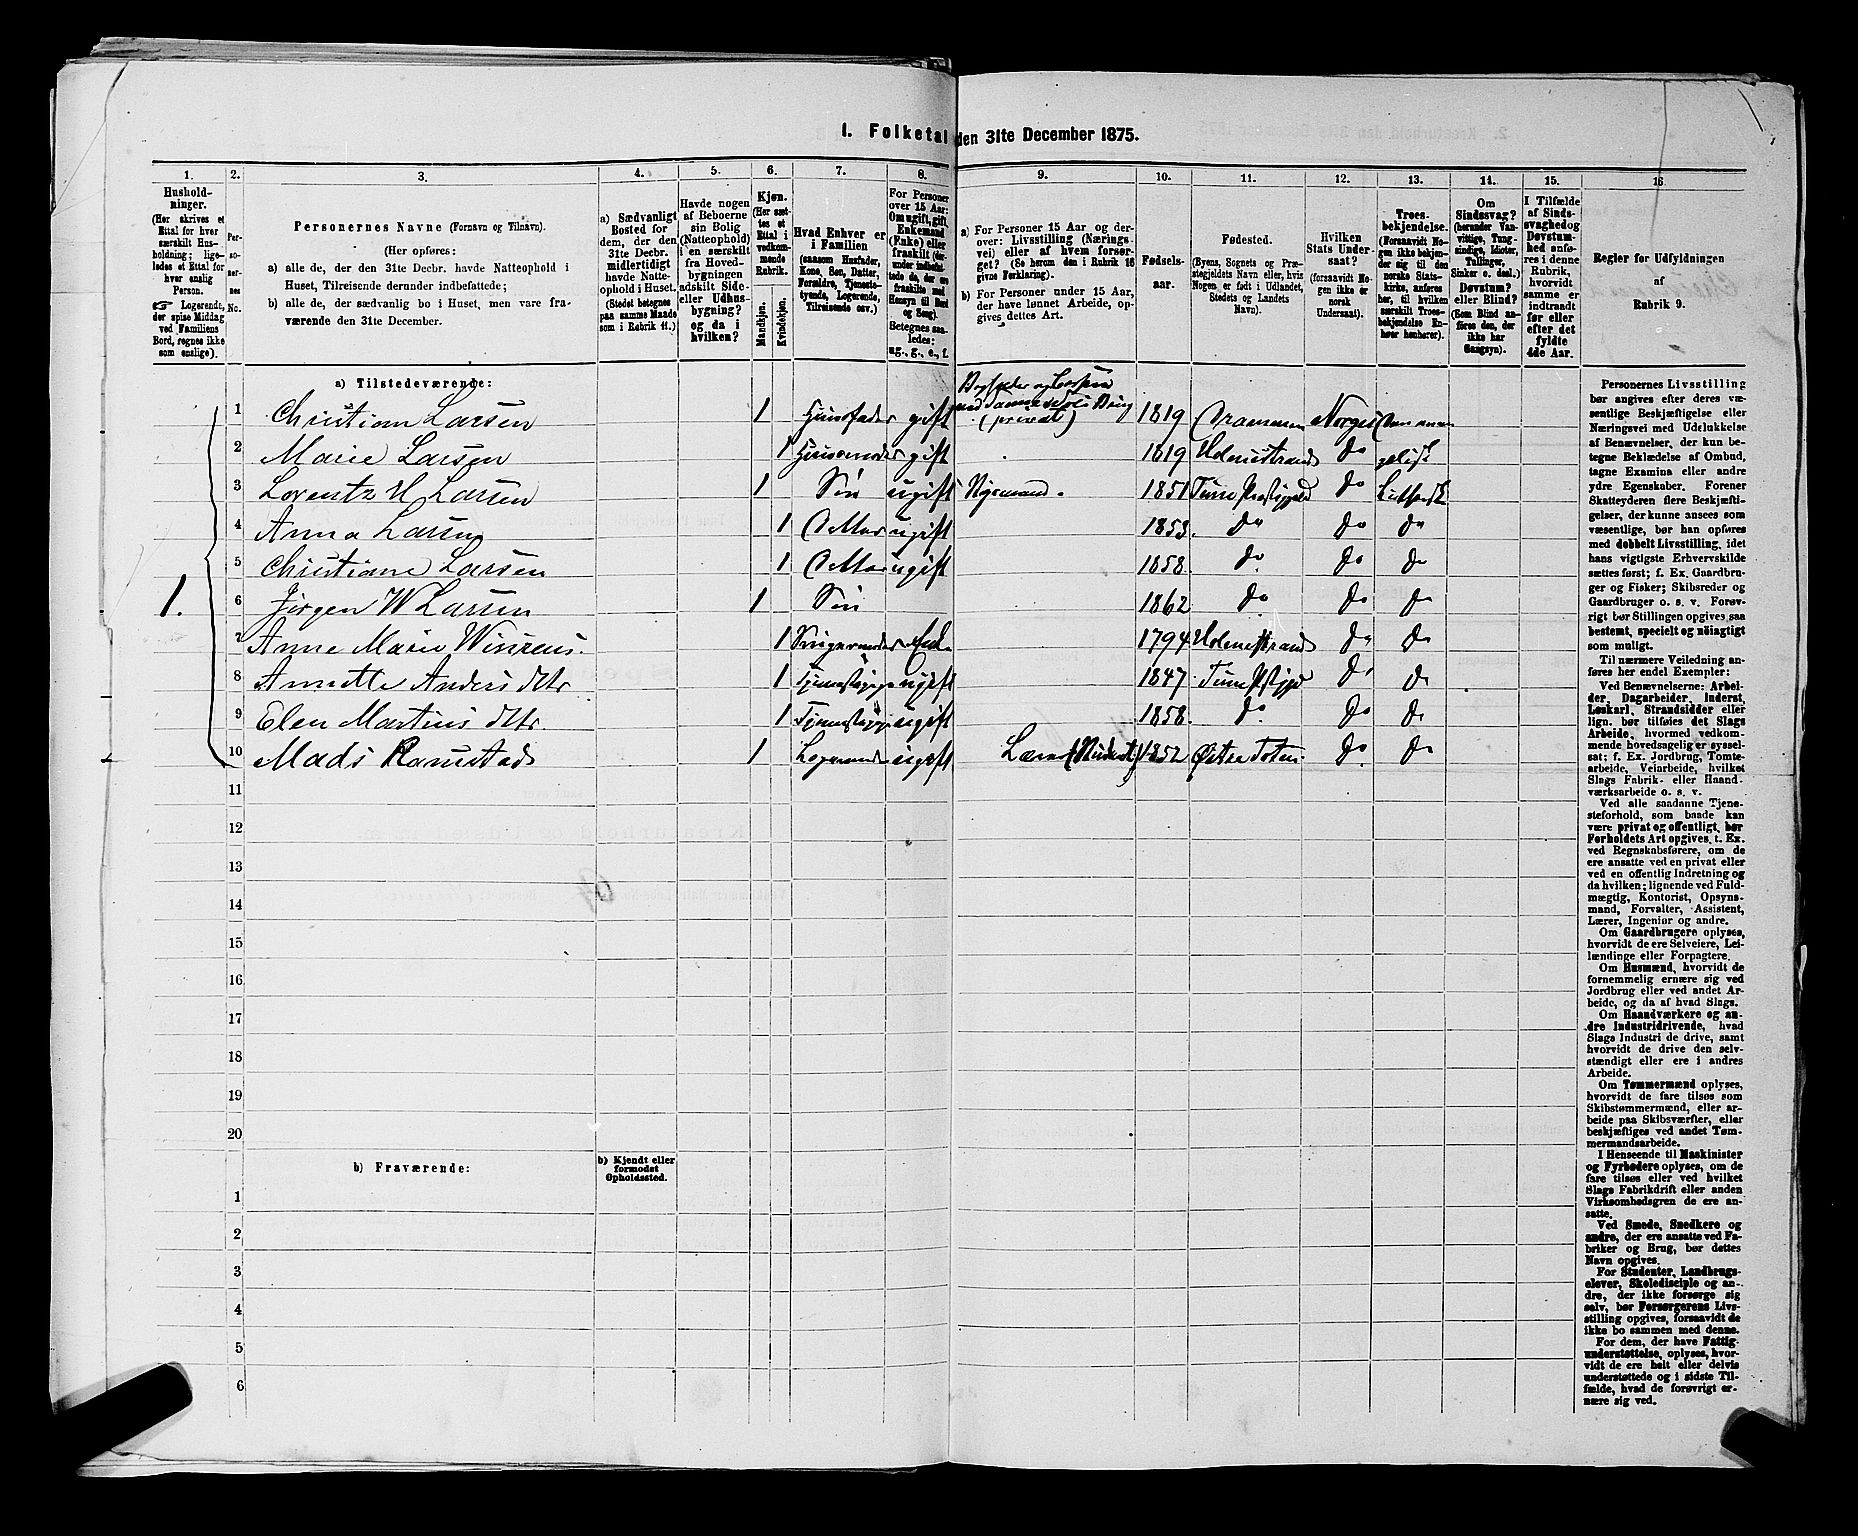 1. Folketal den 31te December 1875.
1.
Hushold-
ninger.
(Her skrives et
Ettal for hver
særskilt Hus-
holdning; lige-
ledes et Ettal for
hver enslig
Person.
☞ Logerende,
der spise Middag
ved Familiens
Bord, regnes ikke
som enslige).
2.
Per-
so-
ner-
nes
No.
3.
Personernes Navne (Fornavn og Tilnavn).
(Her opføres:
a) alle de, der den 31te Decbr. havde Natteophold i
Huset, Tilreisende derunder indbefattede;
b) alle de, der sædvanlig bo i Huset, men vare fra-
værende den 31te December.
4.
a) Sædvanligt
Bosted for
dem, der den
31te Decbr.
midlertidigt
havde Natte-
ophold i Huset.
(Stedet betegnes
paa samme Maade
som i Rubrik 11.)
5.
Havde nogen
af Beboerne
sin Bolig
(Natteophold)
i en særskilt
fra Hoved-
bygningen
adskilt Side-
eller Udhus-
bygning?
og da i
hvilken?
6.
Kjøn.
(Her sæt-
tes et
Ettal i
vedkom-
mende
Rubrik.
Mandkjøn.
Kvindekjøn.
7.
Hvad Enhver er
i Familien
(saasom Husfader,
Kone, Søn, Datter,
Forældre, Tjeneste-
tyende, Logerende,
Tilreisende osv.)
8.
For Personer
over 15 Aar:
Om ugift, gift,
Enkemand
(Enke) eller
fraskilt (der-
under indbefat-
tede de, der ere
fraskilte med
Hensyn til Bord
og Seng).
Betegnes saa-
ledes:
ug., g., e., f.
9.
a) For Personer 15 Aar og der-
over: Livsstilling (Nærings-
vei) eller af hvem forsør-
get? (Se herom den i Rubrik 16
givne Forklaring).
b) For Personer under 15 Aar,
der have lønnet Arbeide, op-
gives dettes Art.
10.
Fødsels-
aar.
11.
Fødested.
(Byens, Sognets og Præ-
stegjeldets Navn eller, hvis
Nogen er født i Udlandet,
Stedets og Landets
Navn).
12.
Hvilken
Stats Under-
saat?
(forsaavidt No-
gen ikke er
norsk
Undersaat).
13.
Troes-
bekjendelse.
(Forsaavidt No-
gen ikke bekjen-
der sig til den
norske Stats-
kirke, anføres
her, til hvilken
særskilt Troes-
bekjendelse En-
hver henhører).
14.
Om
Sindssvag?
(herunder Van-
vittige, Tung-
sindige, Idioter,
Tullinger,
Sinker o. desl.)
Døvstum?
eller Blind?
(Som Blind an-
føres den, der
ikke har
Gangsyn).
15.
I Tilfælde
af Sinds-
svaghed og
Døvstum-
hed anfø-
res i denne
Rubrik,
hvorvidt
samme er
indtrandt
før eller
efter det
fyldte
4de Aar.
16
Regler for Udfyldningen
af
Rubrik 9.
a) Tilstedeværende:
1.
1 Christian Larsen 1 Huusfader gift (privat) 1819 Drammen Norges
2 Marie Larsen 1 Huusmoder gift 1819 Holmestrand do
3 Lorentz H Larsen 1 Søn ugift Styrmand. 1851 Tune Præstigjeld do Luthersk
4 Anna Larsen 1 ugift 1853. do do do
5 Christiane Larsen 1 ugift 1858. do. do do
6 Jørgen W Larsen 1 Søn 1862 do do do
7 Anne Marie 1 Enke 1794 Holmestrand do do
8 Annette Anders dtr 1 ugift 1847. Tune do do
9 Elen Martius dtr. 1 ugift 1858. do. do do
10 Mads Ramstad 1 Logerende ugift (Student) 1852 Østre Toten. do do
11
12
13
14
15
16
17
18
19
20
b) Fraværende:
b) Kjendt eller
formodet
Opholdssted.
1
2
3
4
5
6
Personernes Livsstilling
bør angives efter deres væ-
sentlige Beskjæftigelse eller
Næringsvei med Udelukkelse
af Benævnelser, der kun be-
tegne Beklædelse af Ombud,
tagne Examina eller andre
ydre Egenskaber. Forener
Skatteyderen flere Beskjæfti-
gelser, der kunne ansees som
væsentlige, bør han opføres
med dobbelt Livsstilling, idet
hans vigtigste Erhvervskilde
sættes først; f. Ex. Gaardbru-
ger og Fisker; Skibsreder og
Gaardbruger o. s. v. Forøv-
rigt bør Stillingen opgives saa
bestemt, specielt og nøiagtigt
som muligt.
Til nærmere Veiledning an-
føres her endel Exempler:
Ved Benævnelserne: Arbei-
der, Dagarbeider, Inderst,
Løskarl, Strandsidder eller
lign. bør tilføies det Slags
Arbeide, hvormed vedkom-
mende hovedsagelig er syssel-
sat; f. Ex. Jordbrug, Tomte-
arbeide, Veiarbeide, hvilket
Slags Fabrik- eller Haand-
værksarbeide o. s. v.
Ved alle saadanne Tjene-
steforhold, som baade kan
være privat og offentligt, bør
Forholdets Art opgives, t. Ex.
ved Regnskabsførere, om de
ere ansatte ved en privat eller
ved en offentlig Indretning og
da hvilken; lignende ved Fuld-
mægtig, Kontorist, Opsyns-
mand, Forvalter, Assistent,
Lærer, Ingeniør og andre.
Om Gaardbrugere oplyses,
hvorvidt de ere Selveiere, Lei-
lændinge eller Forpagtere.
Om Husmænd, hvorvidt de
fornemmelig ernære sig ved
Jordbrug eller ved andet Ar-
beide, og da af hvad Slags.
Om Haandværkere og an-
dre Industridrivende, hvad
Slags Industri de drive, samt
hvorvidt de drive den selv-
stændigt eller ere i andres
Arbeide.
Om Tømmermænd oplyses,
hvorvidt de fare tilsøs som
Skibstømmermænd, eller ar-
beide paa Skibsværfter, eller
beskjæftiges ved andet Tøm-
mermandsarbeide.
I Henseende til Maskinister
og Fyrbødere oplyses, om de
fare tilsøs eller ved hvilket
Slags Fabrikdrift eller anden
Virksomhedsgren de ere an-
satte.
Ved Smede, Snedkere og
andre, der ere ansatte ved Fa-
briker og Brug, bør dettes
Navn opgives.
For Studenter, Landbrugs-
elever, Skoledisciple og an-
dre, der ikke forsørge sig
selv, bør Forsørgerens Livs-
stilling opgives, forsaavidt de
ikke bo sammen med denne.
For dem, der have Fattig-
understøttelse, oplyses, hvor-
vidt de ere helt eller delvis
understøttede og i sidste Til-
fælde, hvad de forøvrigt er-
nære sig ved.